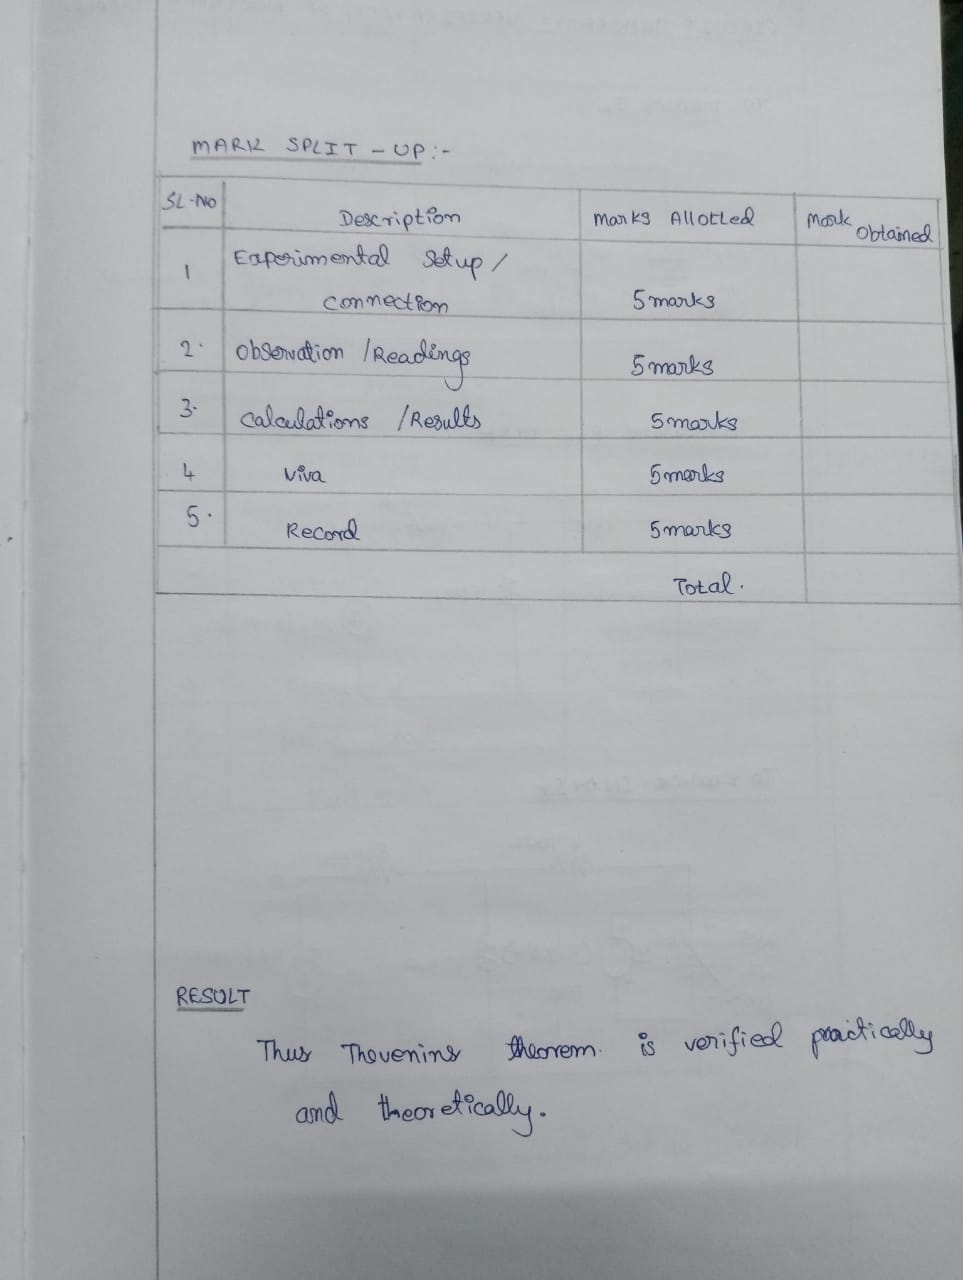 MARK SPLIT - UP :-
SL-No Description Marks Allotted Mark Obtained
1 Experimental Setup / connection 5 marks
2. Observation / Readings 5 marks
3. Calculations / Results 5 marks
4 Viva 5 marks
5. Record 5 marks
Total.
RESULT
Thus Thevenins theorem. is verified practically
and theoretically.